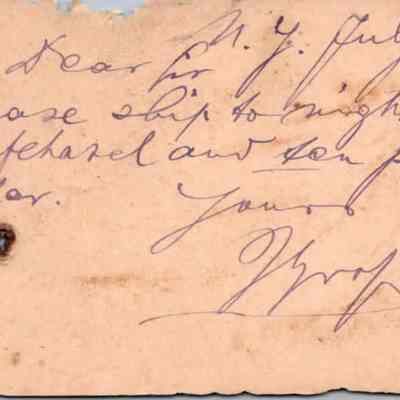 N. Y. July
Dear Sir
ease ship to night
tehazel and ten p
er.
Yours